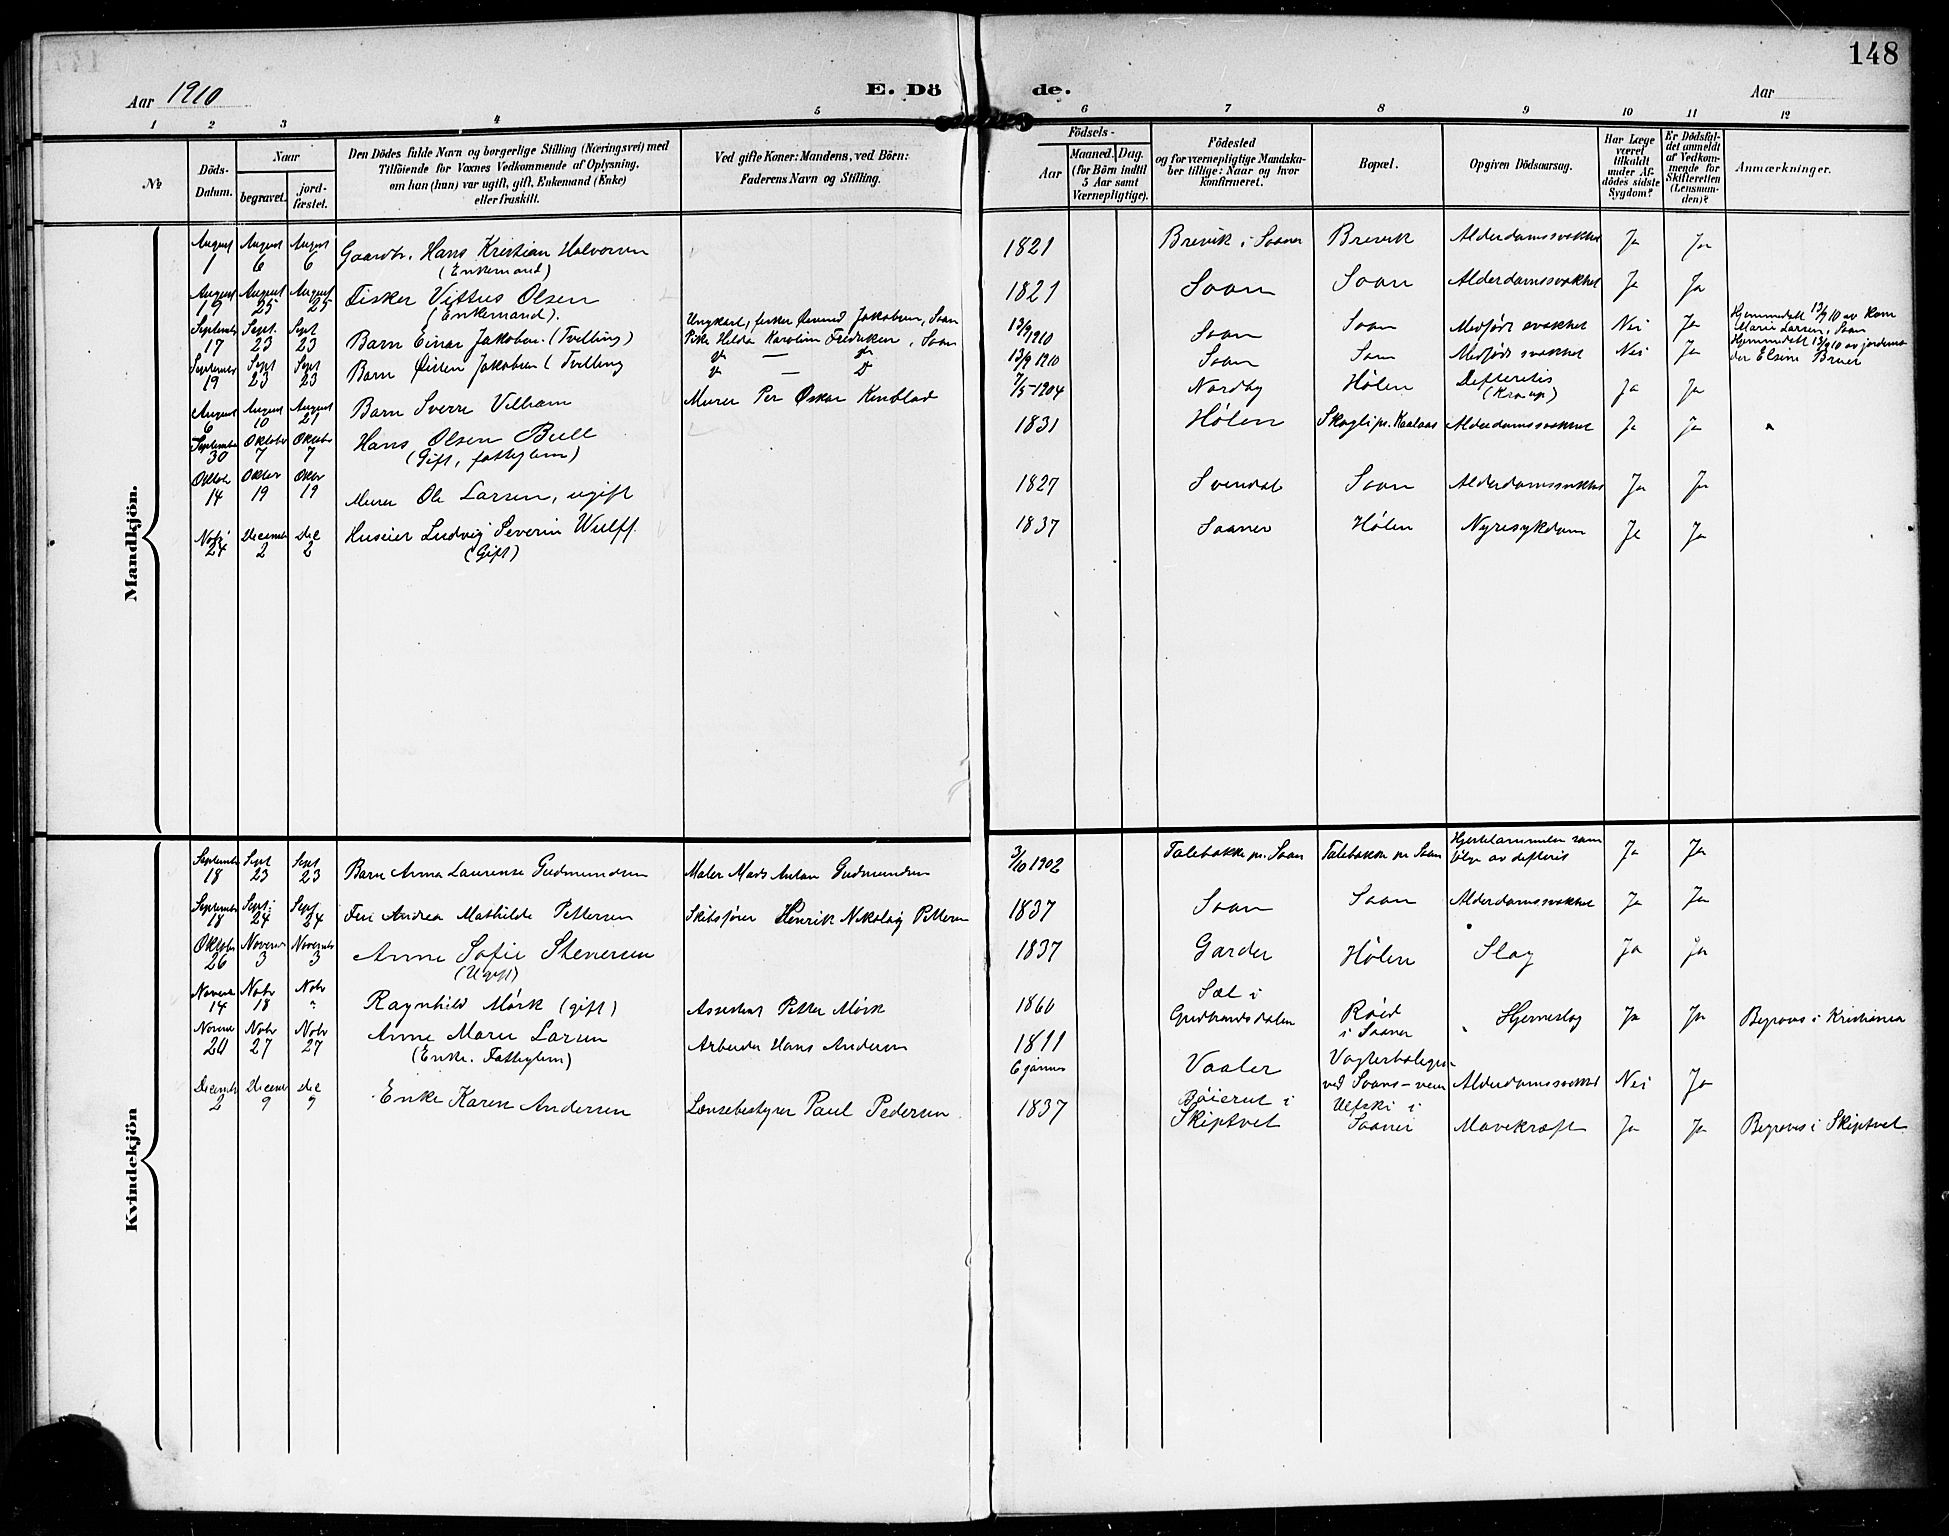 148
Aar 1910
E. Dö de.
Aar
1 2 3 4 5 6 7 8 9 10 11 12
№
Döds-Datum.
Naar
begravet.
jord-fæstet.
Den Dödes fulde Navn og borgerlige Stilling (Næringsvei) med
Tilföiende for Voxnes Vedkommende af Oplysning,
om han (hun) var ugift, gift, Enkemand (Enke)
eller fraskilt.
Ved gifte Koner: Mandens, ved Börn:
Faderens Navn og Stilling.
Födsels-
Aar
Maaned. Dag.
(for Börn indtil
5 Aar samt
Værnepligtige).
Födested
og for værnepligtige Mandska-
ber tillige: Naar og hvor
konfirmeret.
Bopæl.
Opgiven Dödsaarsag.
Har Læge
været
tilkaldt
under Af-
dödes sidste
Sygdom?
Er Dödsfal-
det anmeldt
af Vedkom-
mende for
Skifteretten
(Lensman-
den)?
Anmærkninger.
Mandkjön.
August 1 August 6 August 6 Gaardbr. Hans Kristian Halvorsen (Enkemand) 1821 Brevik i Saaner Brevik Alderdomssvakhet Ja Ja
August 19 August 25 August 25 Fisker Vittus Olsen (Enkemand). 1821 Soon Soon Alderdomssvakhet Ja Ja
Septembr 17 Sept. 23 Sept 23 Barn Einar Jakobsen. (Tvilling) Ungkarl, fisker Jakobsen, Soon
Pike Hilda Karoline Fredriksen, Soon 13/9 1910 Soon Soon Medfødt svakhet Nei Ja Hjemmedøbt 13/9 10 av Kone
Marie Larsen, Soon
Septembr 19 Sept 23 Sept 23 Barn Øisten Jakobsen (Tvilling do — do
do — do 13/9 1910 Soon Soon Medfødt svakhet Nei Ja Hjemmedøbt 13/9 10 av jordemo-
der Elsine Bruer
August 6 August 10 August 21 Barn Sverre Vilham Murer Per Oskar Kinblad 7/5-1904 Nordby Hølen Defteritis (Kroup) Ja Ja
September 30 Oktober 7 Oktober 7 Hans Olsen Bull (Gift, fattiglem) 1831 Hølen Skogli pr. Kaalaas Alderdomssvakhet Ja Ja
Oktob 14 Oktber 19 Oktbr 19 Murer Ole Larsen, ugift 1827 Svendal Soon Alderdomssvakhet Ja Ja
Novbr 24 December 2 Dec 2 Huseier Ludvig Severin Wulff. (Gift) 1837 Saaner Hølen Nyresykdom Ja Ja
Kvindekjön
September 18 Sept 23 Sept 23 Barn Anna Laurense Gudmundsen Maler Mads Anton Gudmundsen 3/10 1902 Talebakke pr. Soon Talebakke pr Soon Hjertelammelse som
følge av defterit Ja Ja
September 18 Sept: 24 Sept 24 Fru Andrea Mathilde Pettersen Skibsfører Henrik Nikolay Pettersen 1837 Soon Soon Alderdomssvakhet Ja Ja
Oktober 26 November 3 November 3 Anne Sofie Stenersen (Ugift) 1837 Garder Hølen Slag Ja Ja
November 14 Nobr 18 Nobr " Ragnhild Mørk (gift) Assistent Petter Mørk 1860 Sel i
Gudbrandsdalen Røed
i Saaner Hjerneslag Ja Ja Begraves i Kristiania
November 20 Nobr 27 Nobr 27 Anne Marie Larsen (Enke. Fattiglem) Arbeider Hans Andersen 1811 Vaaler Vogterboligen
ved Soons-veien Alderdomssvakhet Nei Ja
December 2 December 9 Dec 9 Enke Karen Andersen Lænsebestyrer Paul Pedersen 1837 Bøierud i
Skiptvet
i
Saaner Mavekræft Ja Ja Begraves i Skiptvet